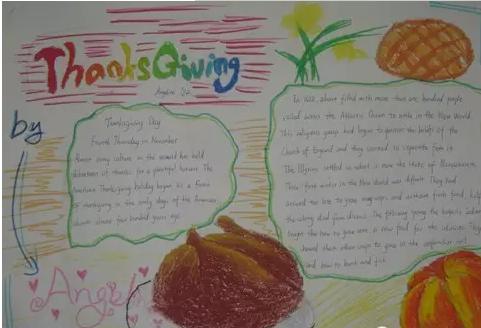 ThanksGiving
Angela
by
Angel
Thanksgiving Day
Fourth Thursday in November
Almost every culture in the world has held
celebrations of thanks for a plentiful harvest. The
American Thanksgiving holiday began as a feast
of thanksgiving in the early days of the American
almost four hundred years ago.
In 1620, a boat filled with more than one hundred people
sailed across the Atlantic Ocean to settle in the New World.
This religious group had begun to question the beliefs of the
Church of England and they wanted to separate from it.
The Pilgrims settled in what is now the state of Massachusetts.
Their first winter in the New World was difficult. They had
arrived too late to grow many crops, and without fresh food, half
the colony died from disease. The following spring the Iroquois Indians
taught them how to grow corn, a new food for the colonists. They
showed them other crops to grow in the unfamiliar soil
and how to hunt and fish.